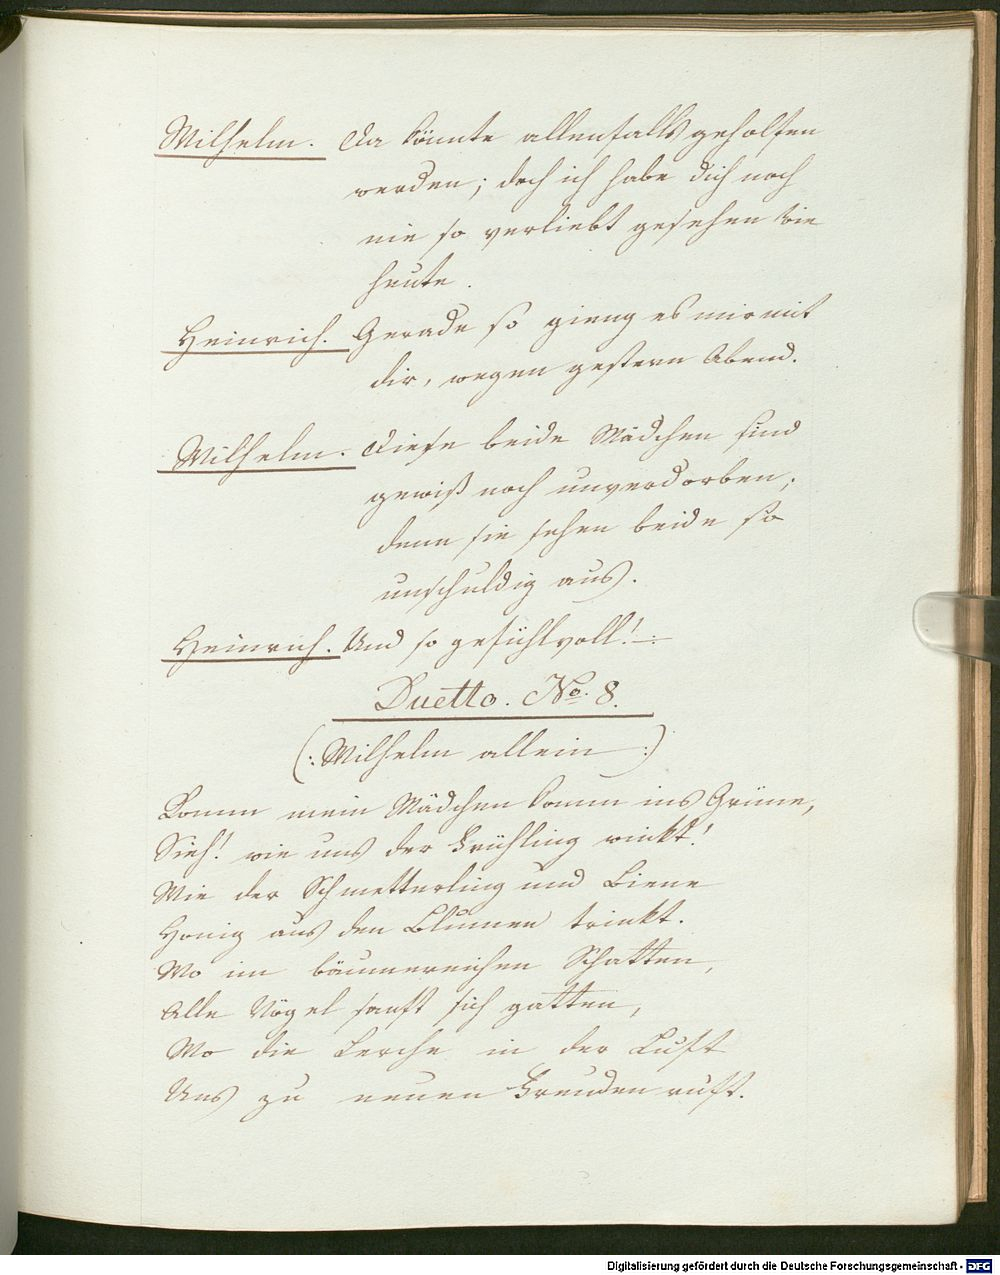 Wilhelm. Da könnte allenfalls geholfen
werden; doch ich habe dich noch
nie so verliebt gesehen wie
heute.
Heinrich. Gerade so gieng es mir mit
dir, wegen gestern Abend.
Wilhelm. Diese beide Mädchen sind
gewiß noch unverdorben;
denn sie sehen beide so
unschuldig aus.
Heinrich. Und so gefühlvoll!
Duetto. No. 8.
(: Wilhelm allein :)
Komm mein Mädchen komm ins Grüne,
Sieh! wie uns der Frühling winkt!
Wie der Schmetterling und Biene
Honig aus den Blumen trinkt.
Wo im bäumereichen Schatten,
Alle Vögel sanft sich gatten,
Wo die Lerche in der Luft
Uns zu neuen Freuden ruft.
Digitalisierung gefördert durch die Deutsche Forschungsgemeinschaft - DFG